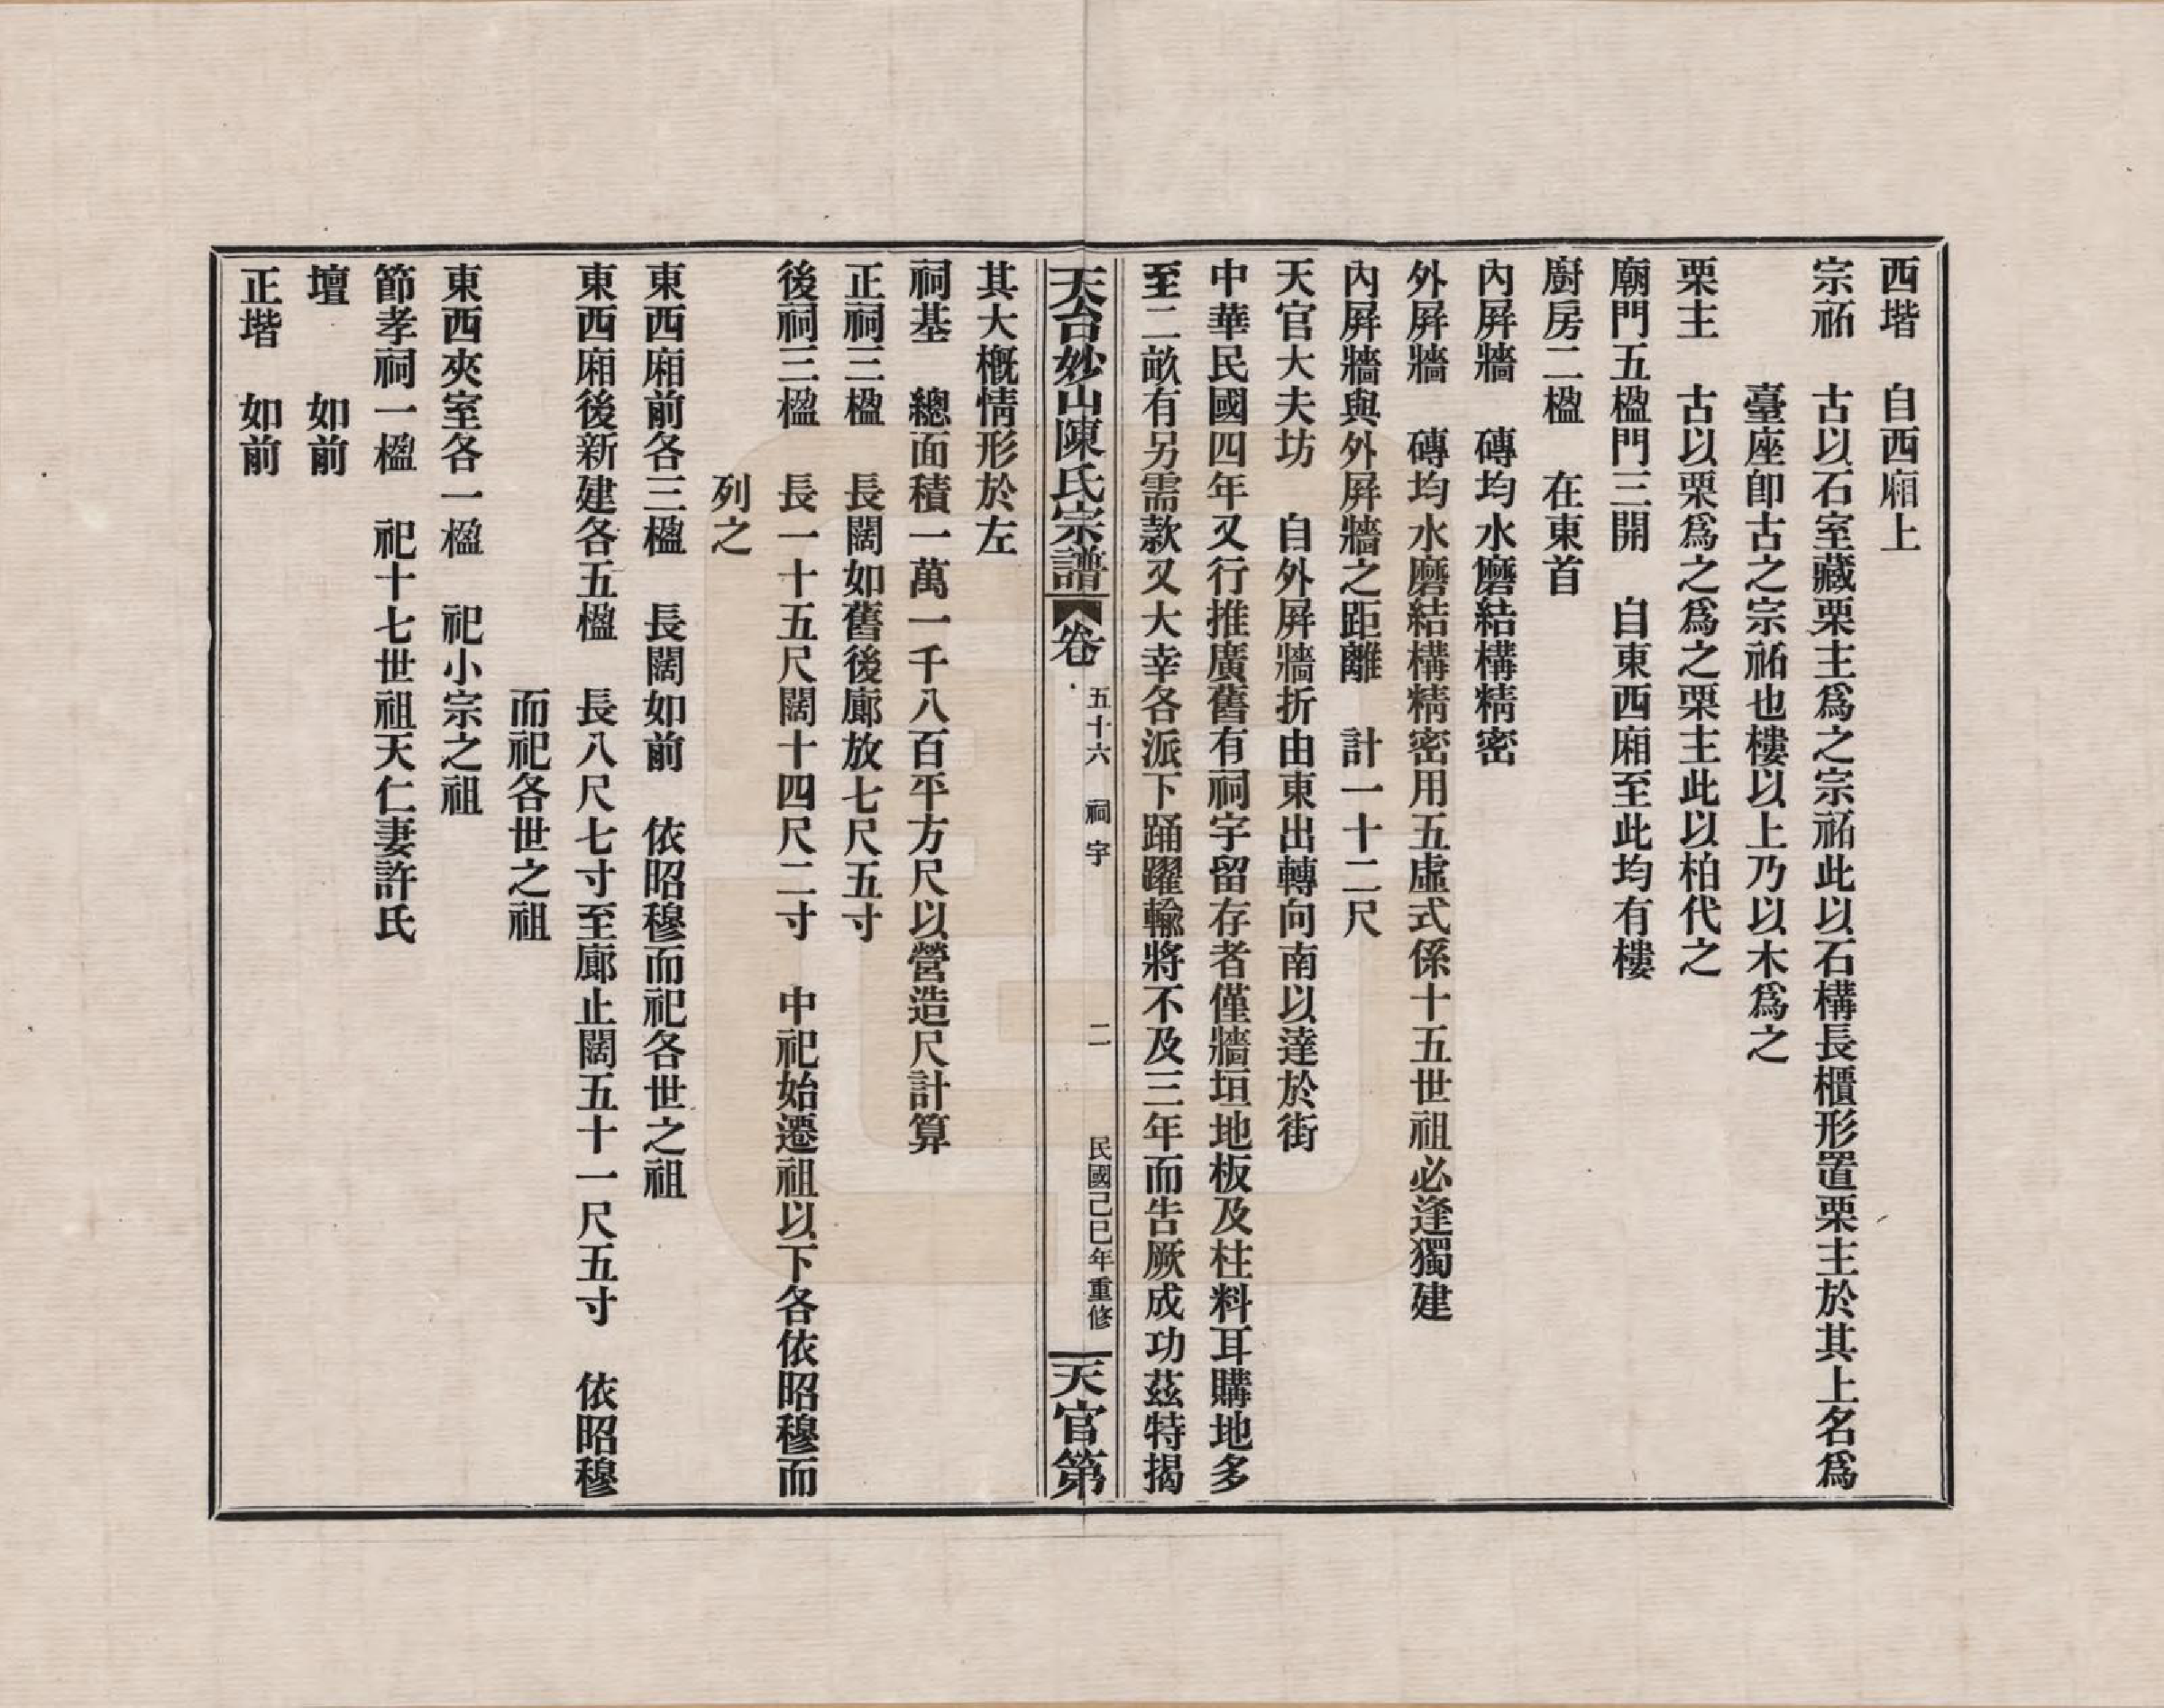 西堦　自西廂上
宗祏　古以石室藏栗主爲之宗祏此以石構長櫃形置栗主於其上名爲
臺座卽古之宗祏也樓以上乃以木爲之
栗主　古以栗爲之爲之栗主此以柏代之
廟門五楹門三開　自東西廂至此均有樓
廚房二楹　在東首
內屛牆　磚均水磨結構精密
外屛牆　磚均水磨結構精密用五虛式係十五世祖必逢獨建
內屛牆與外屛牆之距離　計一十二尺
天官大夫坊　自外屛牆折由東出轉向南以達於街
中華民國四年又行推廣舊有祠宇留存者僅牆垣地板及柱料耳購地多
至二畝有另需款又大幸各派下踊躍輸將不及三年而告厥成功茲特揭
天台妙山陳氏宗譜　卷　五十六　祠宇　二　民國己巳年重修　天官第
其大概情形於左
祠基　總面積一萬一千八百平方尺以營造尺計算
正祠三楹　長闊如舊後廊放七尺五寸
後祠三楹　長一十五尺闊十四尺二寸　中祀始遷祖以下各依昭穆而
列之
東西廂前各三楹　長闊如前　依昭穆而祀各世之祖
東西廂後新建各五楹　長八尺七寸至廊止闊五十一尺五寸　依昭穆
而祀各世之祖
東西夾室各一楹　祀小宗之祖
節孝祠一楹　祀十七世祖天仁妻許氏
壇　如前
正堦　如前